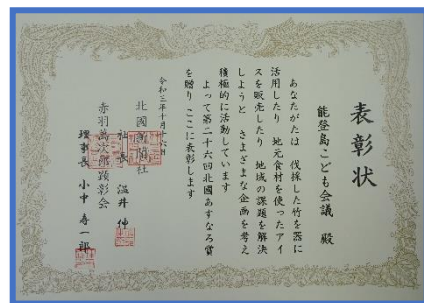 表彰状
能登島こども会議 殿
あなたがたは 伐採した竹を器に
活用したり 地元食材を使ったアイ
スを販売したり 地域の課題を解決
しようと さまざまな企画を考え
積極的に活動しています
よって第二十六回北國あすなろ賞
を贈りここに表彰します
令和三年十月十六日
北國新聞社
社長 温井 伸
赤羽萬次郎顕彰会
理事長 小中 寿一郎